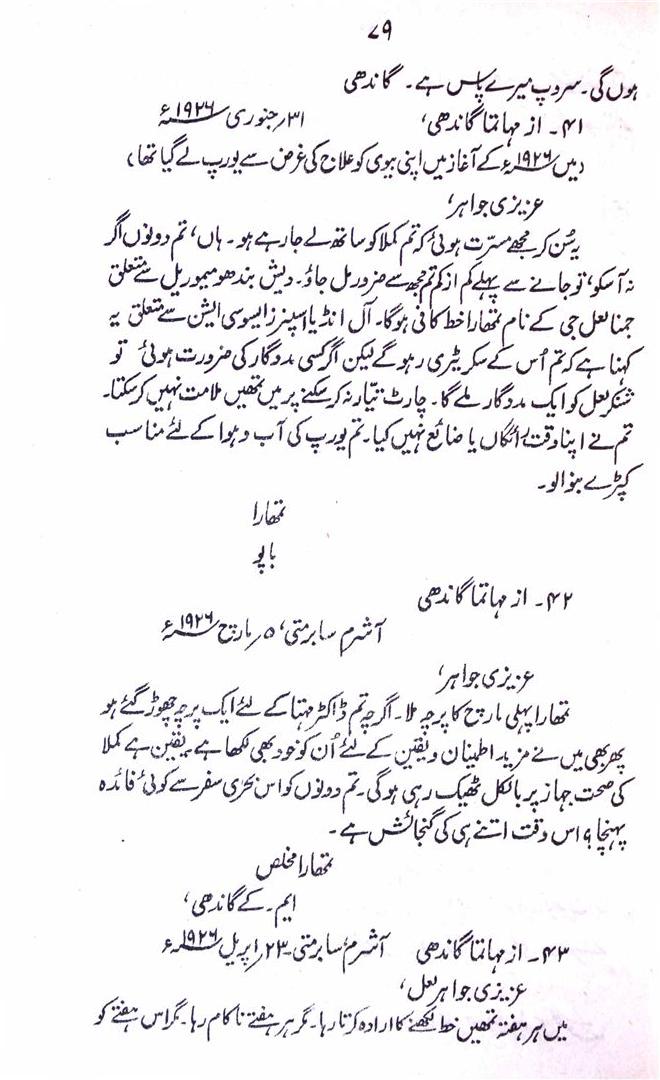 ۷۹
ہوں گی۔ سروپ میرے پاس ہے۔ گاندھی
۴۱۔ از مہاتما گاندھی، ۳۱؍ جنوری ۱۹۲۶ء
(میں ۱۹۲۶ء کے آغاز میں اپنی بیوی کو علاج کی غرض سے یورپ لے گیا تھا)
عزیزی جواہر،
یہ سُن کر مجھے مسرّت ہوئی کہ تم کملا کو ساتھ لے جا رہے ہو۔ ہاں، تم دونوں اگر
نہ آسکو، تو جانے سے پہلے کم از کم تم مجھ سے ضرور مل جاؤ۔ دیش بندھو میموریل سے متعلق
جمنا لعل جی کے نام تمھارا خط کافی ہوگا۔ آل انڈیا اسپنرز ایسوسی ایشن سے متعلق یہ
کہنا ہے کہ تم اُس کے سکریٹری رہوگے لیکن اگر کسی مددگار کی ضرورت ہوئی تو
شنکر لعل کو ایک مددگار ملے گا۔ چارٹ تیّار نہ کرسکنے پر میں تمھیں ملامت نہیں کرسکتا۔
تم نے اپنا وقت رائگاں یا ضائع نہیں کیا۔ تم یورپ کی آب و ہوا کے لئے مناسب
کپڑے بنوا لو۔
تمھارا
باپو
۴۲۔ از مہاتما گاندھی
آشرم سابرمتی، ۵؍ مارچ ۱۹۲۶ء
عزیزی جواہر،
تمھارا پہلی مارچ کا پرچہ ملا۔ اگرچہ تم ڈاکٹر مہتا کے لئے ایک پرچہ چھوڑ گئے ہو
پھر بھی میں نے مزید اطمینان و یقین کے لئے اُن کو خود بھی لکھا ہے۔ یقین ہے کملا
کی صحت جہاز پر بالکل ٹھیک رہی ہوگی۔ تم دونوں کو اس بحری سفر سے کوئی فائدہ
پہنچا؟ اس وقت اتنے ہی کی گنجائش ہے۔
تمھارا مخلص
ایم۔ کے گاندھی،
۴۳۔ از مہاتما گاندھی آشرم سابرمتی۔ ۲۳؍ اپریل ۱۹۲۶ء
عزیزی جواہر لعل،
میں ہر ہفتہ تمھیں خط لکھنے کا ارادہ کرتا رہا۔ مگر ہر ہفتے ناکام رہا۔ مگر اس ہفتے کو